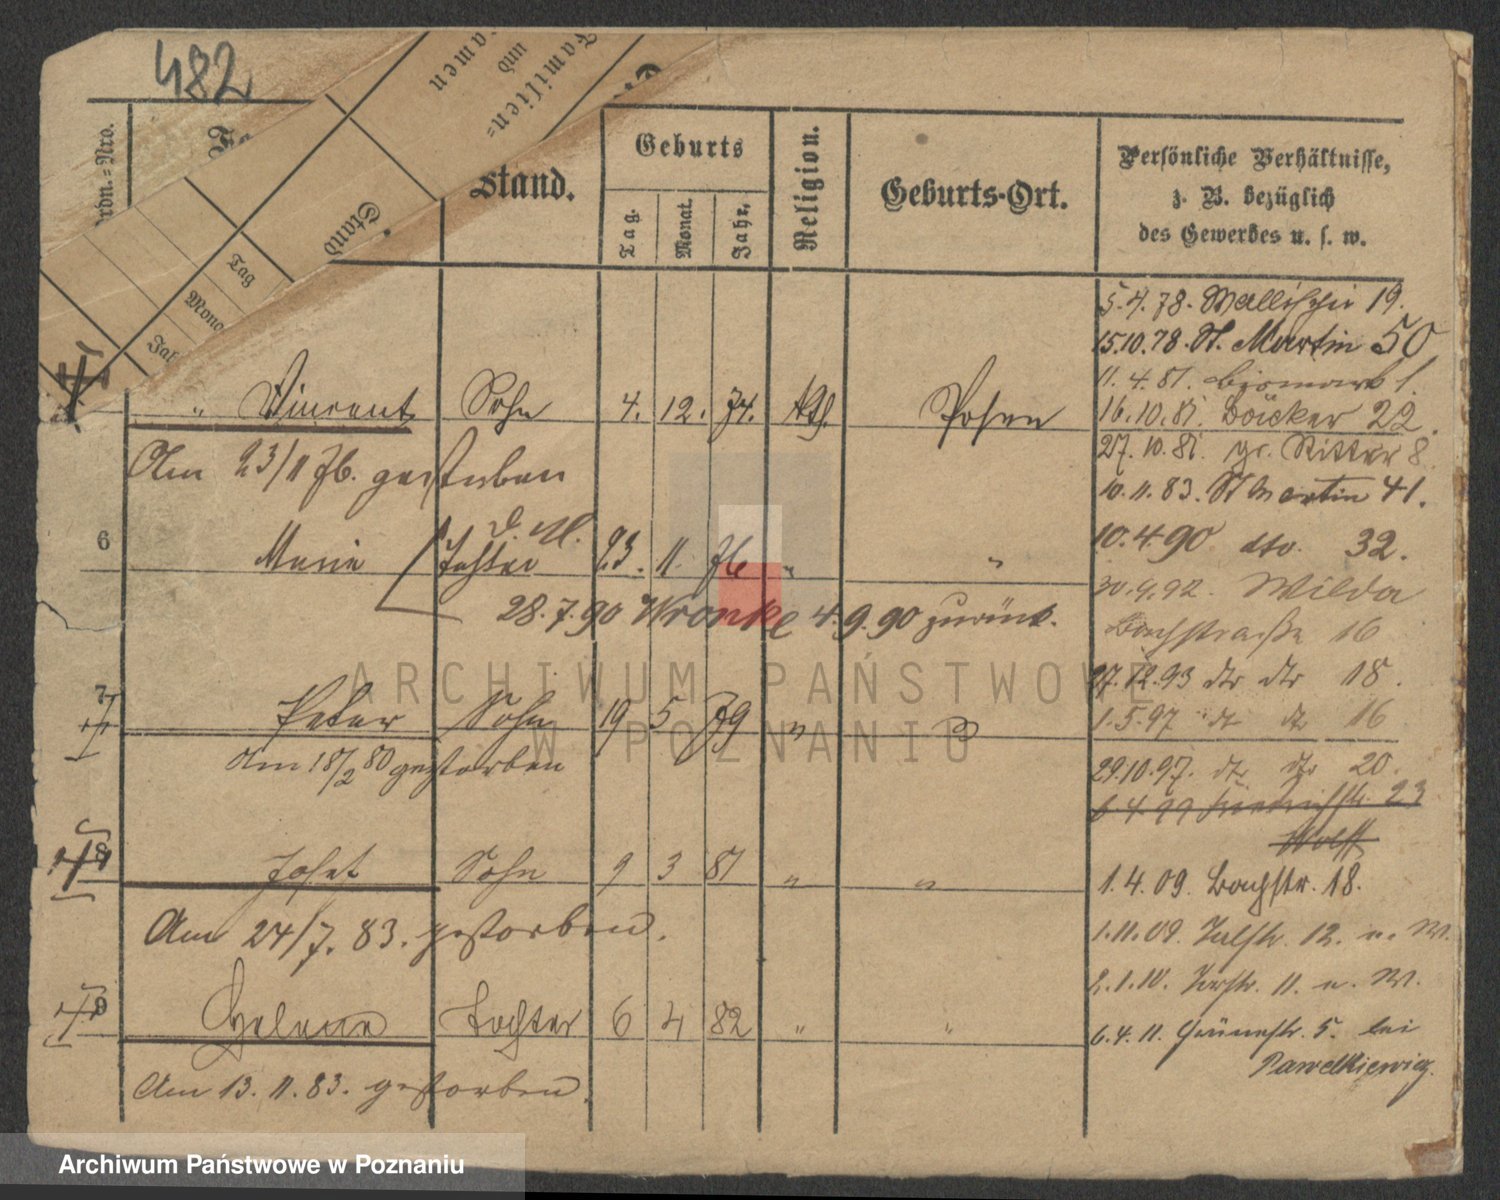 482
Familien=
und
Stand
Tag
Stand.
Geburts
Tag.
Monat.
Jahr.
Religion.
Geburts-Ort.
Persönliche Verhältnisse,
z. B. bezüglich
des Gewerbes u. s. w.
5.4.78. Wallischei 19.
15.10.78. St. Martin 50
11.4.81. Bismark 1.
" Vincent Sohn 4. 12. 74. kth. Posen
16.10.81. Bäcker 22.
Am 23/11 76. gestorben
27.10.81. gr. Ritter 8.
10.11.83. St Martin 41.
6 Marie Tochter 23. 11. 76 " "
10.4.90 dto. 32.
28.7.90 Wronke 4.9.90 zurück.
30.9.92. Wilda
Bachstraße 16
7 Peter Sohn 19 5 79 "
27.12.93 dto dto 18.
1.5.97 16
Am 18/2 80 gestorben
29.10.97. 20.
23
Wolff
8 Josef Sohn 9 3 81 " "
1.4.09. Bachstr. 18.
Am 24/7. 83. gestorben.
1.11.09. 12. u. W.
2.1.10. 11. u. W.
9 Helene Tochter 6 4 82 " "
6.4.11. 5. bei
Pawelkiewicz.
Am 13.11.83. gestorben.
ARCHIWUM PAŃSTWOWE
W POZNANIU
Archiwum Państwowe w Poznaniu